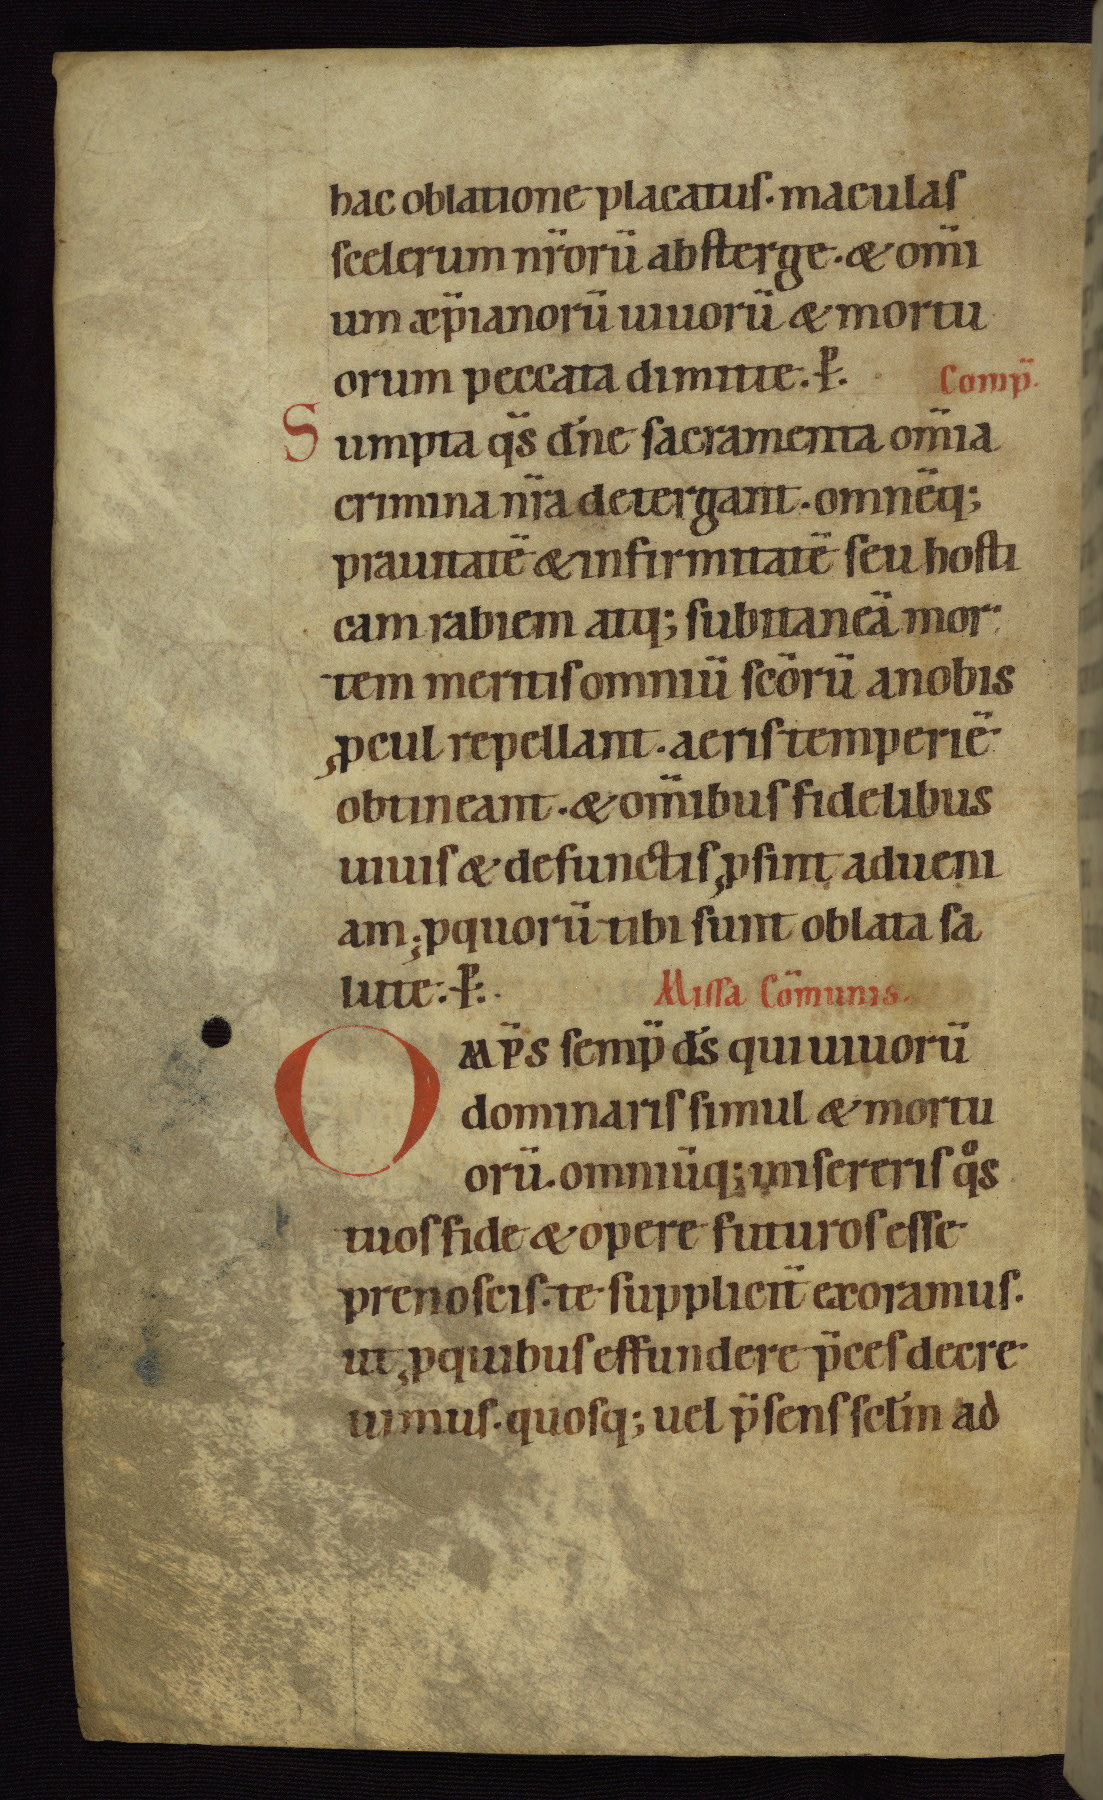 hac oblatione placatus. maculas
scelerum nr̄orū absterge. & om̄i
um xp̄ianorū uiuorū & mortu
orum peccata dimitte. P. Comp̄.
Sumpta qs̄ dn̄e sacramenta om̄ia
crimina nr̄a detergant. omnēq;
prauitatē & infirmitatē seu hosti
cam rabiem atq; subitaneā mor
tem meritis omniū scōrū a nobis
ꝓcul repellant. aeris temperiē
obtineant. & om̄ibus fidelibus
uiuis & defunctis ꝓsint ad ueni
am, ꝓ quorū tibi sunt oblata sa
lute. P. Missa Cōmunis.
Omp̄s semp̄ ds̄ qui uiuorū
dominaris simul & mortu
orū. omniūq; misereris qͦs
tuos fide & opere futuros esse
prenoscis. te supplicit̄ exoramus.
ut ꝓ quibus effundere p̄ces decre
uimus. quosq; uel p̄sens sc̄lm ad